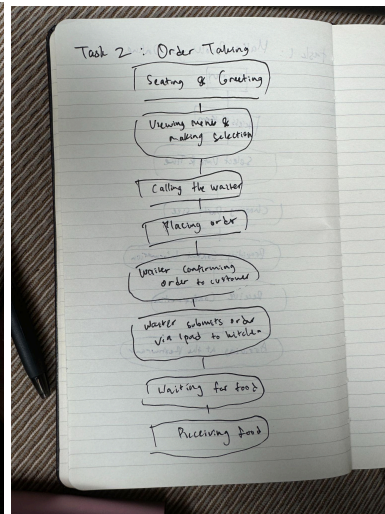 Task 2 : Order Taking
Seating & Greeting
Viewing menu &
making selection
Calling the waiter
Placing order
Waiter confirming
order to customer
Waiter submits order
via ipad to kitchen
Waiting for food
Receiving food